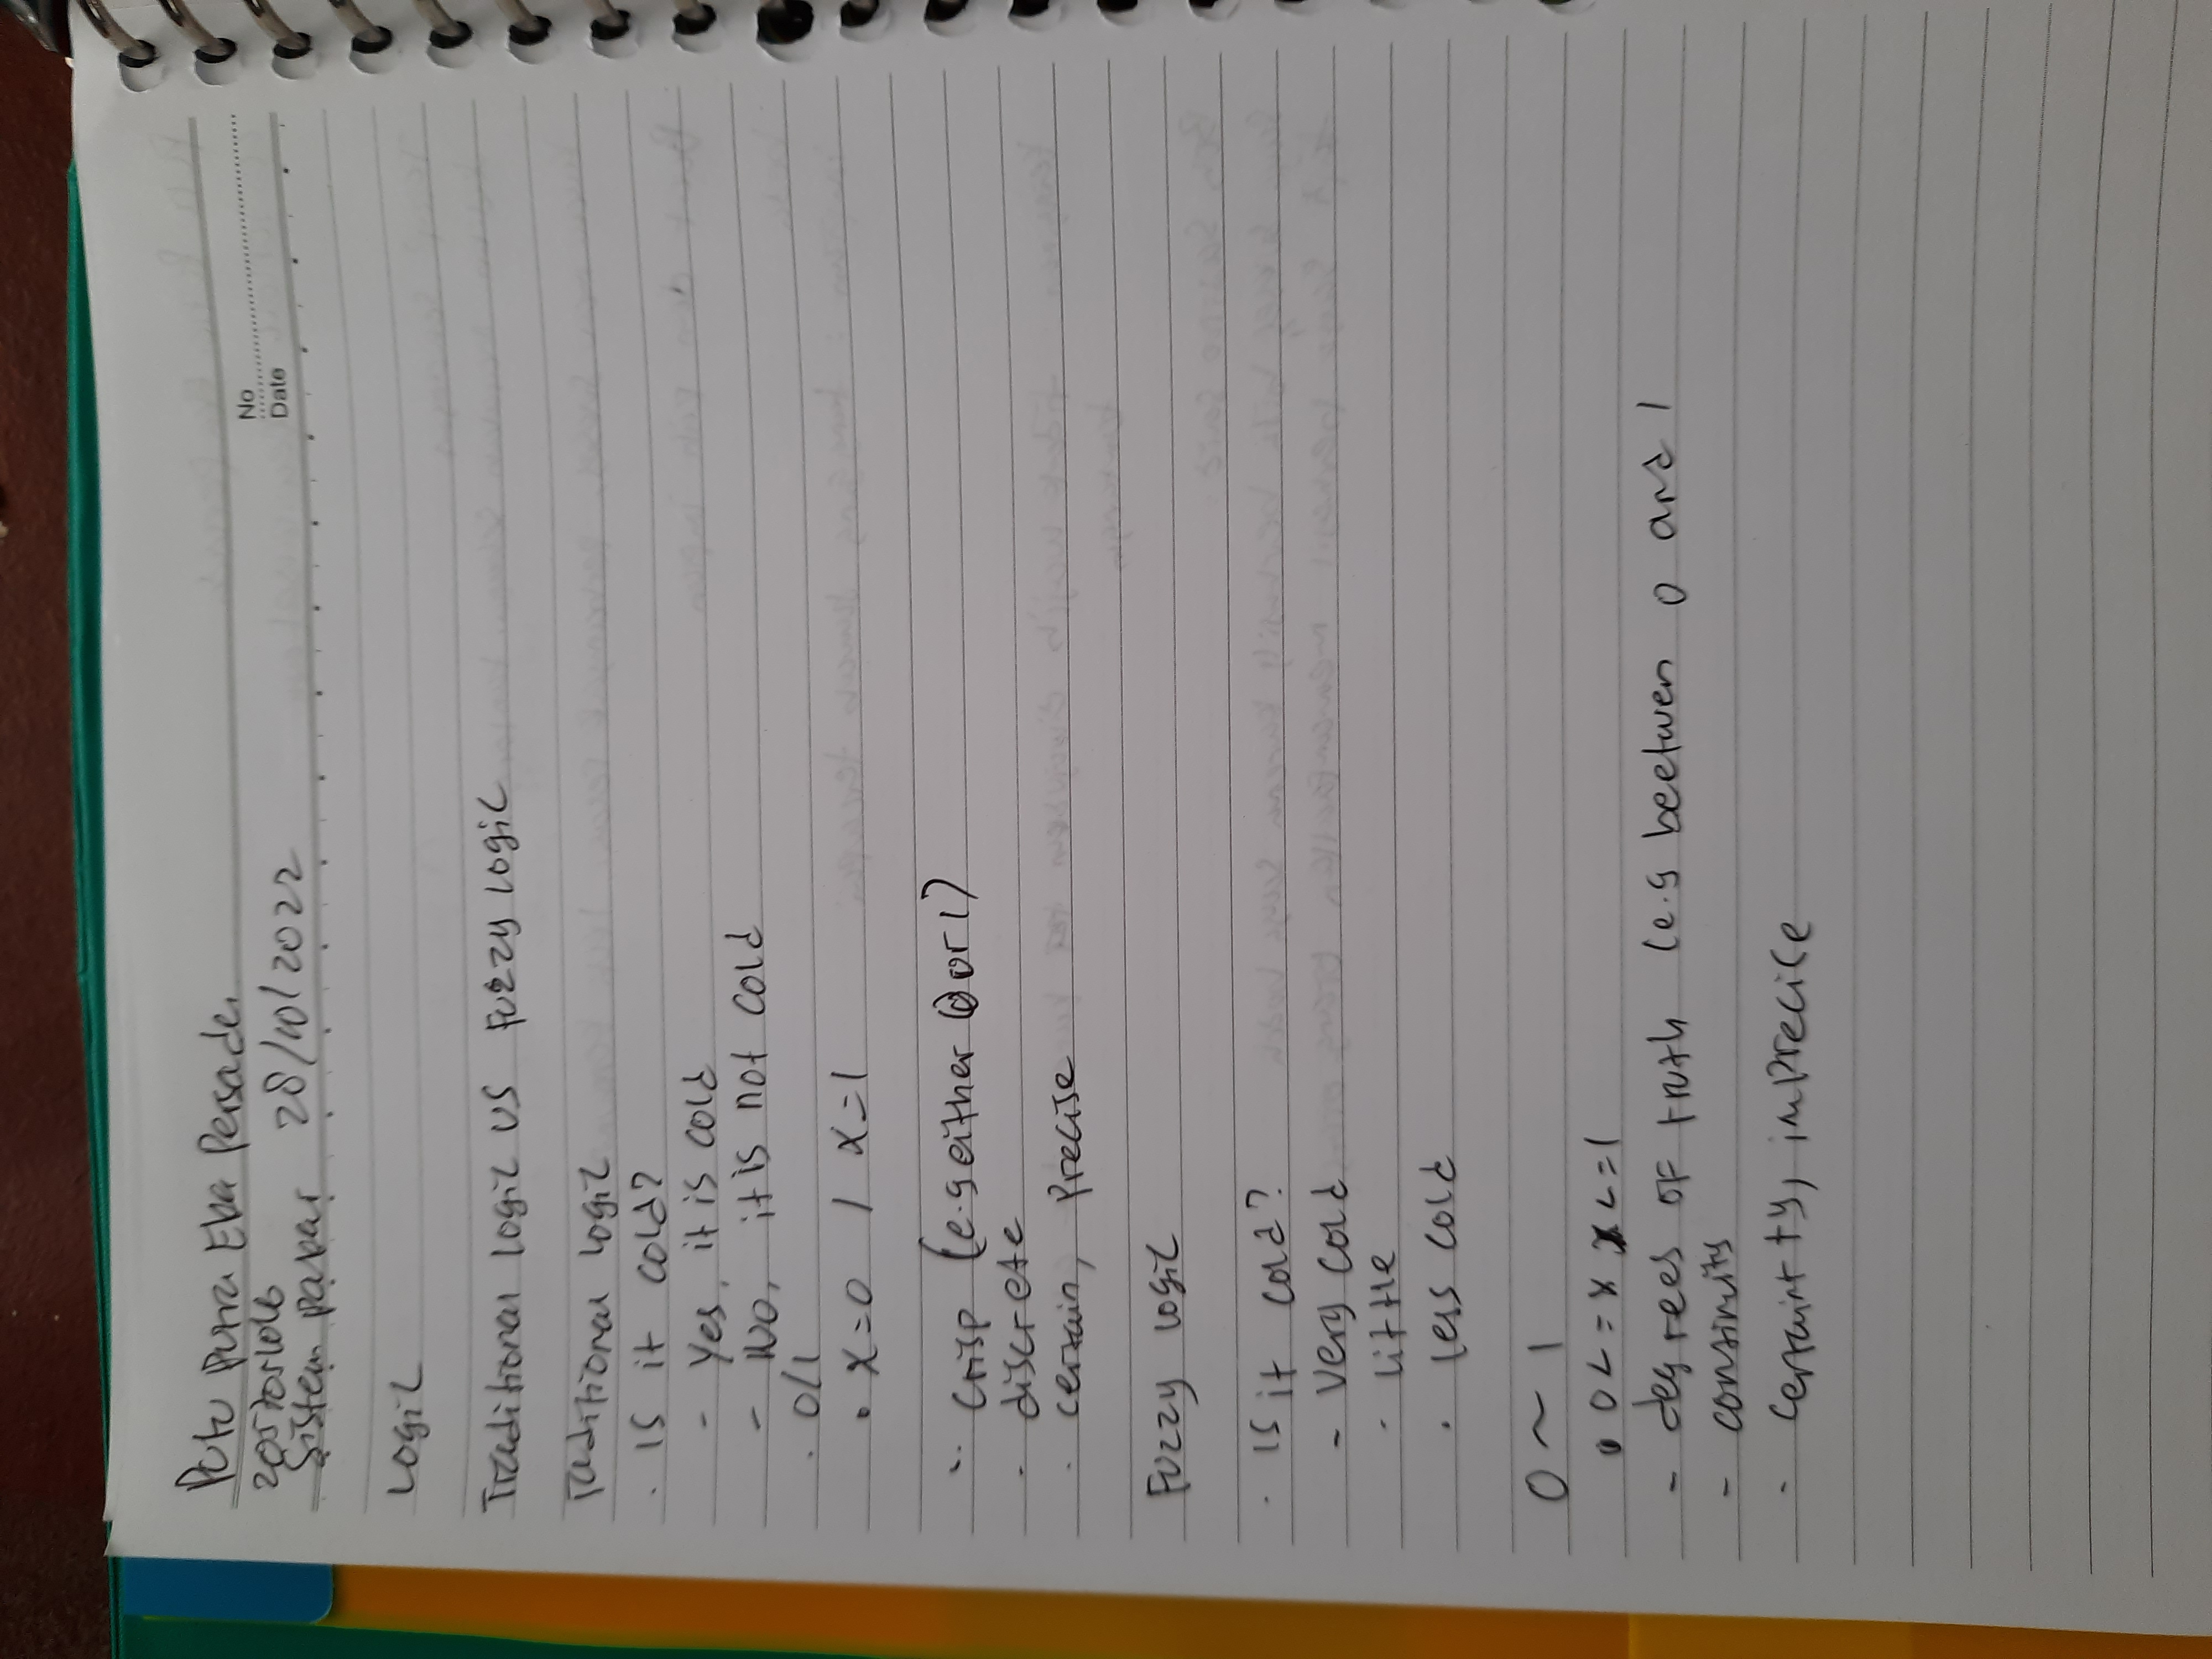 Putu Putra Eka Persada
No
2057051016
Date
Sistem pakar 28/10/2022
Logic
Traditional Logic VS Fuzzy Logic
Traditional Logic
· Is it cold?
- Yes, it is cold
- No, it is not cold
· 0/1
• x=0 / x=1
· Crisp (e.g either 0 or 1)
· discrete
· certain, Precise
Fuzzy Logic
· Is it cold?
- Very cold
· Little
· Less cold
0 ~ 1
• 0 <= x x <= 1
- degrees of truth (e.g beetwen 0 and 1
- continuity
- certaintty, imprecise